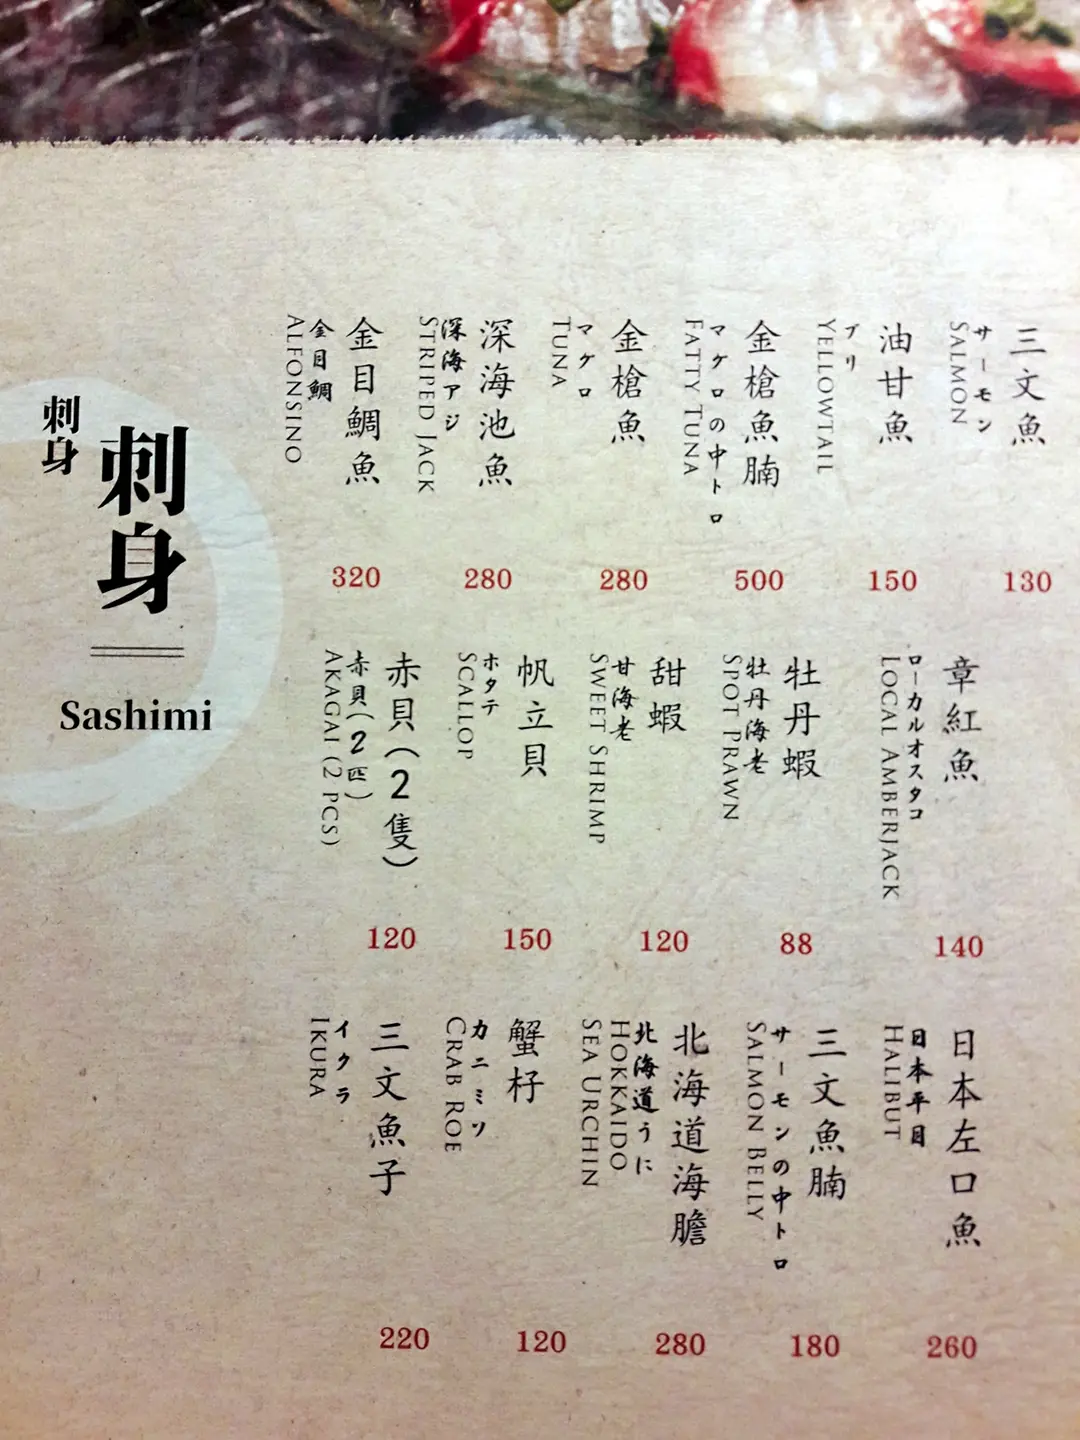 三文魚
サーモン
SALMON
130
油甘魚
ブリ
YELLOWTAIL
150
金槍魚腩
マグロの中トロ
FATTY TUNA
500
金槍魚
マグロ
TUNA
280
深海池魚
深海アジ
STRIPED JACK
280
金目鯛魚
金目鯛
ALFONSINO
320
章紅魚
ローカルオスタコ
LOCAL AMBERJACK
140
牡丹蝦
牡丹海老
SPOT PRAWN
88
甜蝦
甘海老
SWEET SHRIMP
120
帆立貝
ホタテ
SCALLOP
150
赤貝(2隻)
赤貝(2匹)
AKAGAI (2 PCS)
120
日本左口魚
日本平目
HALIBUT
260
三文魚腩
サーモンの中トロ
SALMON BELLY
180
北海道海膽
北海道うに
HOKKAIDO
SEA URCHIN
280
蟹籽
カニミソ
CRAB ROE
120
三文魚子
イクラ
IKURA
220
刺身
刺身
Sashimi